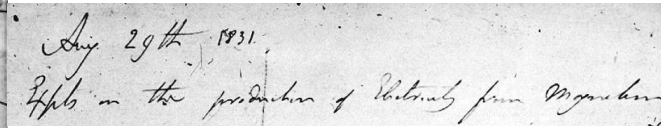 Aug 29th 1831.
Expts on the production of Electricity from Magnetism